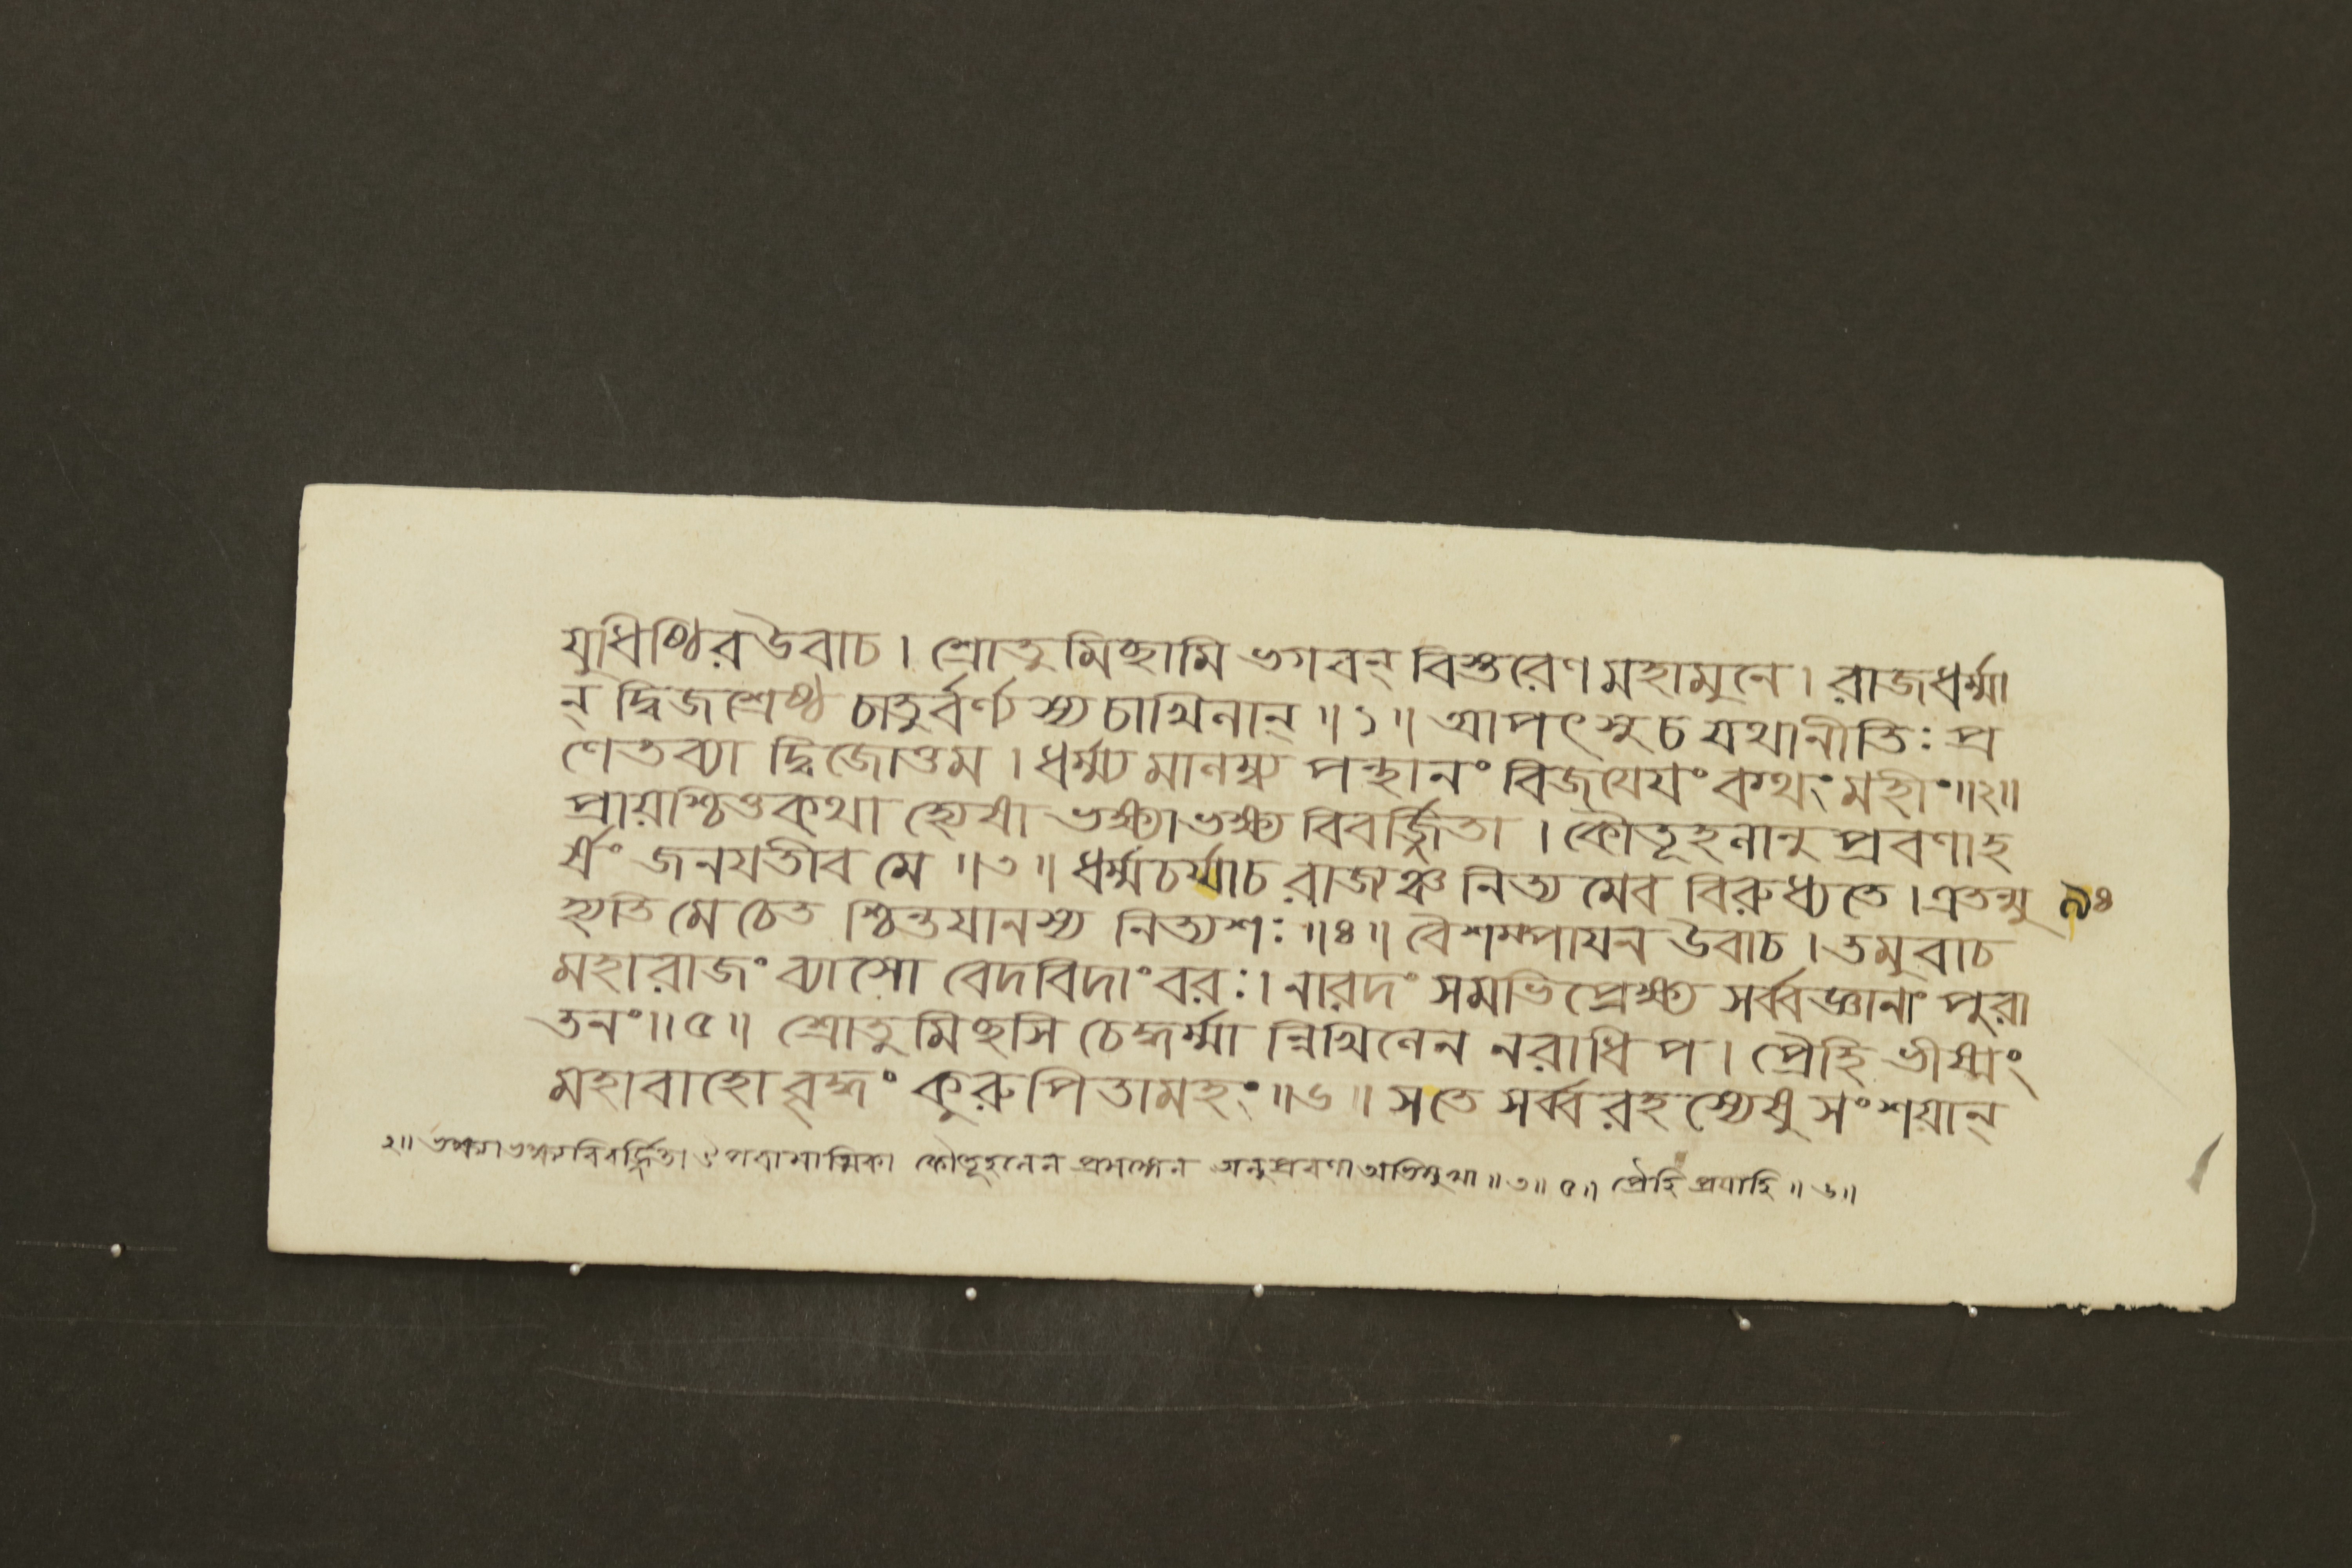 যুধিষ্ঠির উবাচ। শ্রোতুমিচ্ছামি ভগবন্ বিস্তরেণ মহামুনে। রাজধর্ম্মা
ন্ দ্বিজশ্রেষ্ঠ চাতুর্বর্ণ্যস্য চাখিলান্॥১॥ আপৎসু চ যথানীতিঃ প্র
ণেতব্যা দ্বিজোত্তম। ধর্ম্ম্যমালম্ব্য পন্থানং বিজযেযং কথং মহীং॥২॥
প্রায়শ্চিত্তকথা হ্যেষা ভক্ষ্যাভক্ষ্য বিবর্জ্জিতা। কৌতূহলানুপ্রবণা হ
র্ষং জনযতীব মে॥৩॥ ধর্ম্মচর্য্যা চ রাজ্যঞ্চ নিত্যমেব বিরুধ্যতে। এতন্মু
হ্যতি মে চেতশ্চিন্তযানস্য নিত্যশঃ॥৪॥ বৈশম্পাযন উবাচ। তমুবাচ
মহারাজং ব্যাসো বেদবিদাংবরঃ। নারদং সমভিপ্রেক্ষ্য সর্ব্বজ্ঞানাং পুরা
তনং॥৫॥ শ্রোতুমিচ্ছসি চেদ্ধর্ম্মান্নিখিলেন নরাধিপ। প্রৈহি ভীষ্মং
মহাবাহো বৃদ্ধং কুরুপিতামহং॥৬॥ স তে সর্ব্বরহস্যেষু সংশয়ান্
৯৪
২॥ ভক্ষ্যাভক্ষ্যবিবর্জ্জিতা ঔপবাসাত্মিকা কৌতূহলেন অনুপ্রবণা অভিমুখা॥৩॥৫॥ প্রৈহি প্রযাহি॥৬॥